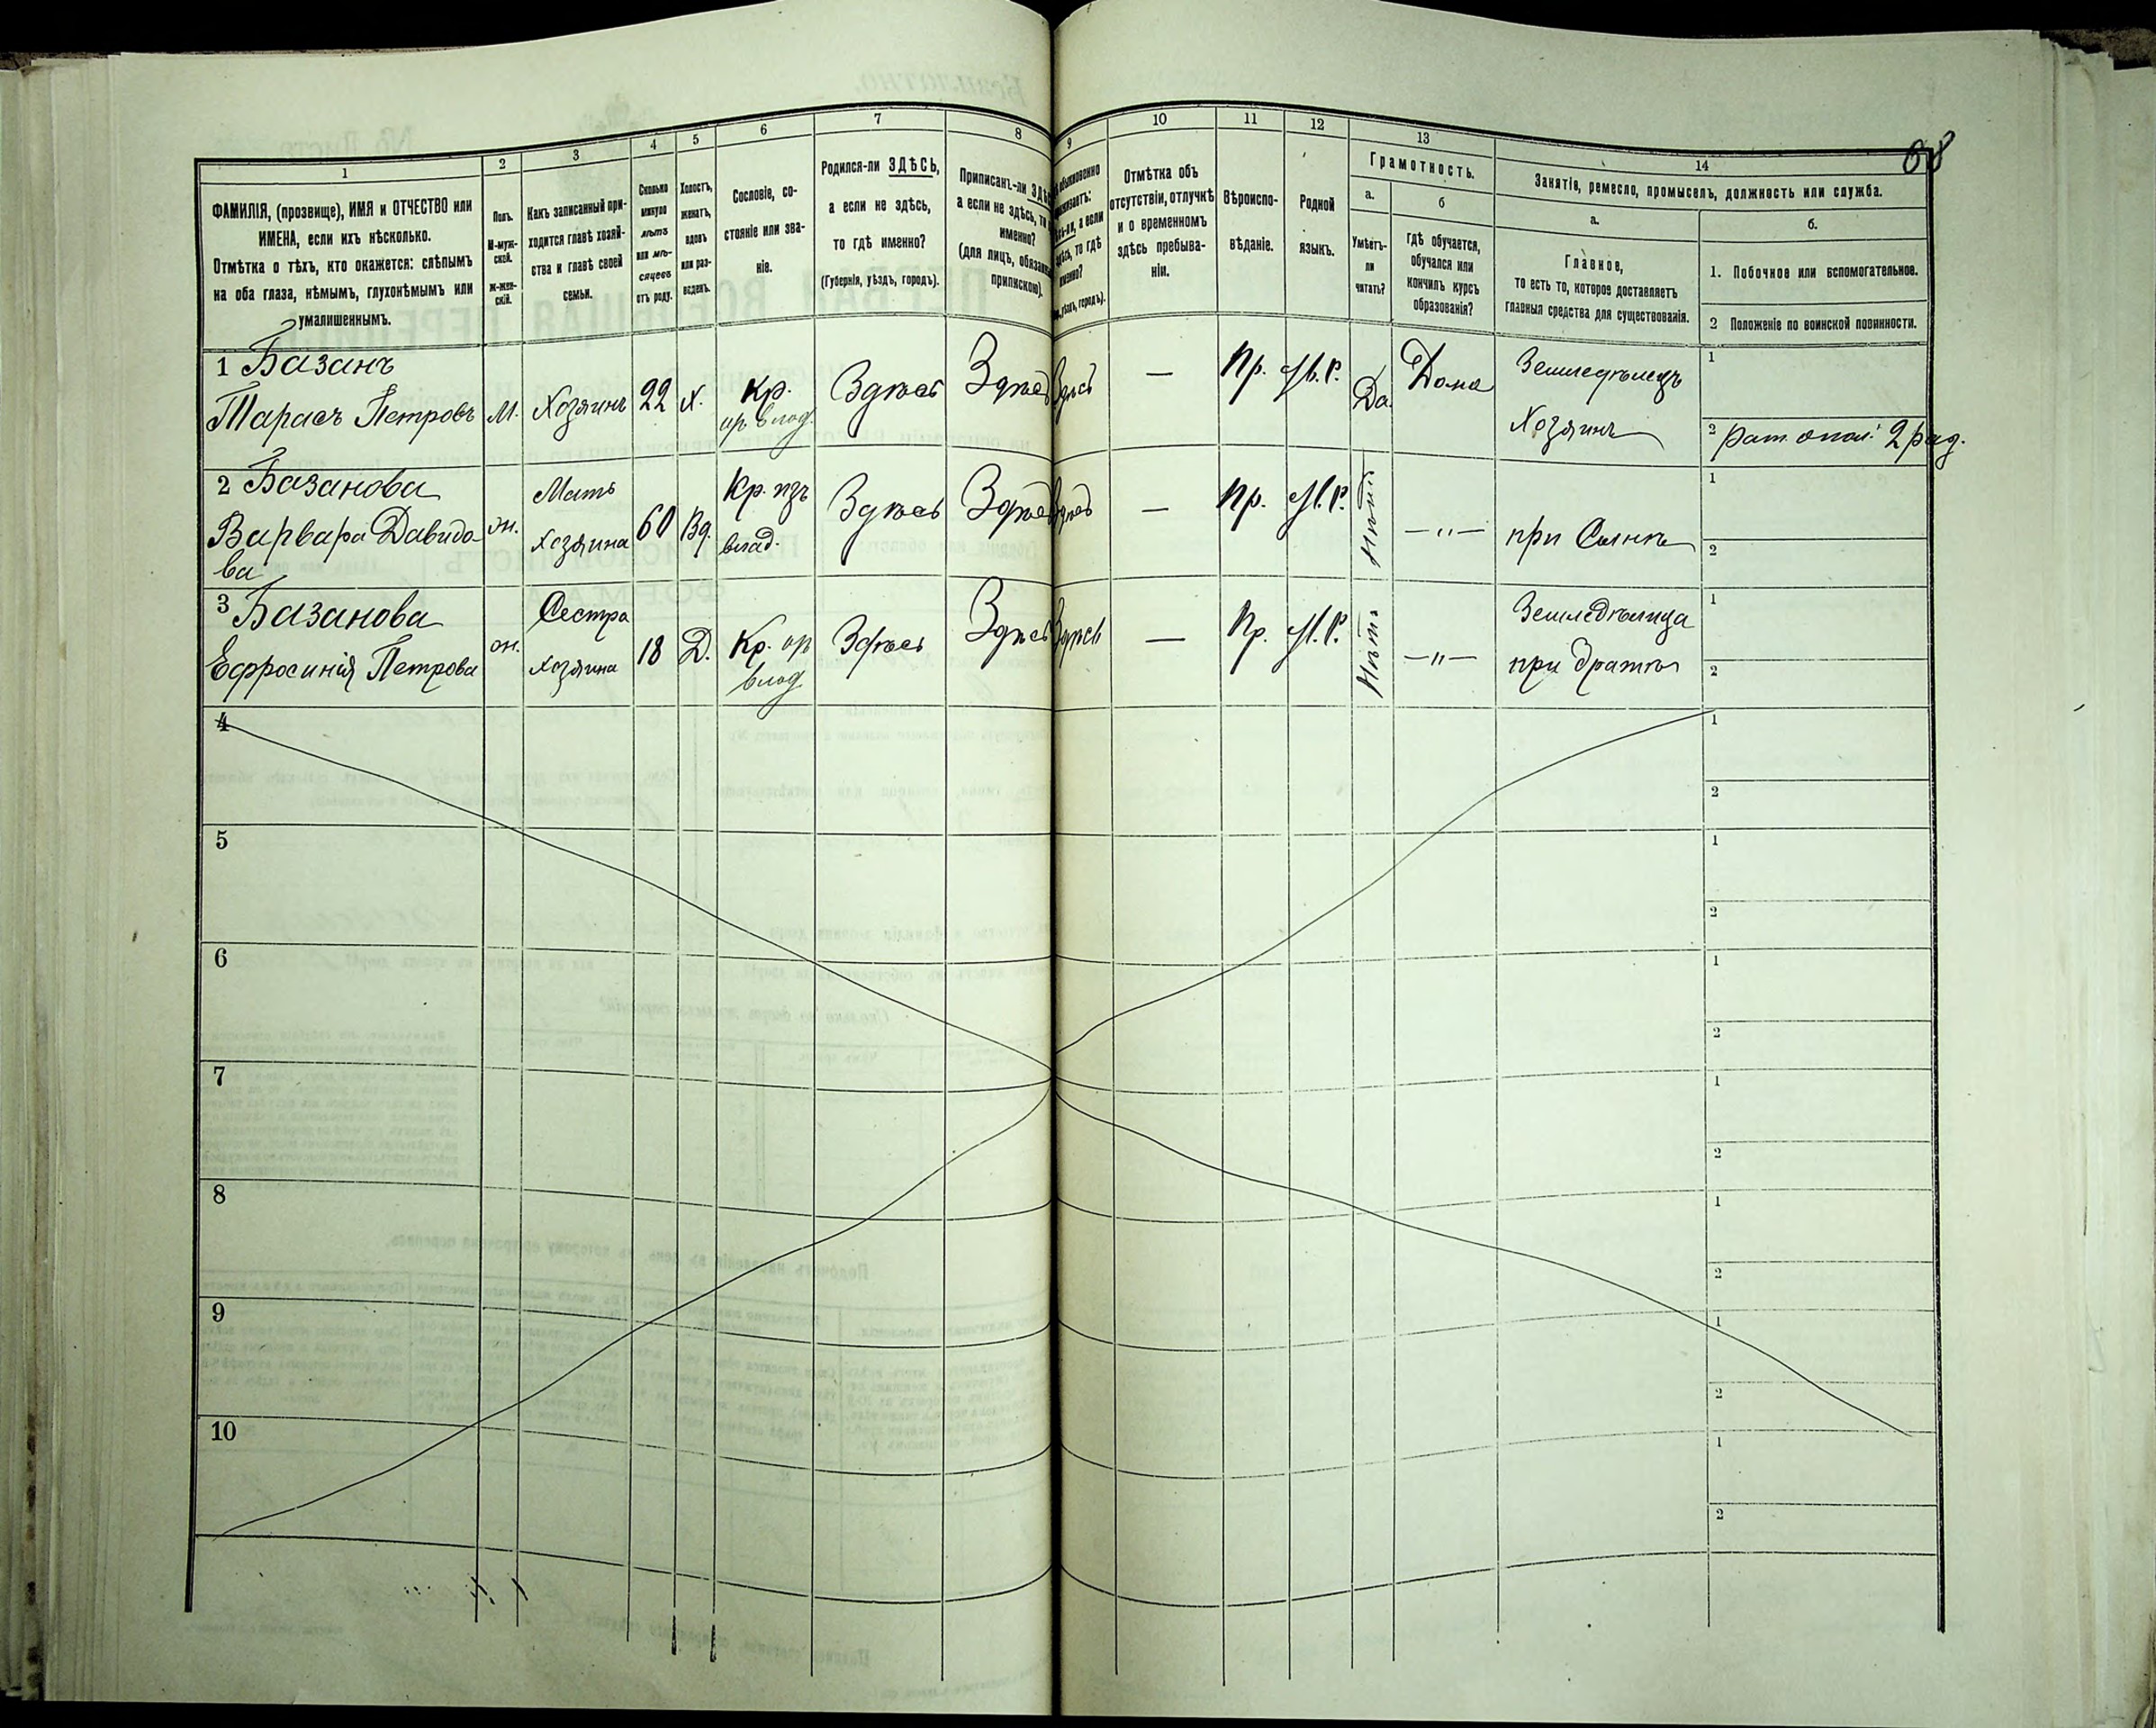 68
1
2
3
4
5
6
7
8
9
10
11
12
13
14
ФАМИЛІЯ, (прозвище), ИМЯ и ОТЧЕСТВО или
ИМЕНА, если ихъ нѣсколько.
Отмѣтка о тѣхъ, кто окажется: слѣпымъ
на оба глаза, нѣмымъ, глухонѣмымъ или
умалишеннымъ.
Полъ.
М-муж-
ской.
Ж-жен-
скій.
Какъ записанный при-
ходится главѣ хозяй-
ства и главѣ своей
семьи.
Сколько
минуло
лѣтъ
или мѣ-
сяцевъ
отъ роду.
Холостъ,
женатъ,
вдовъ
или раз-
веденъ.
Сословіе, со-
стояніе или зва-
ніе.
Родился-ли ЗДѢСЬ,
а если не здѣсь,
то гдѣ именно?
(Губернія, уѣздъ, городъ).
Приписанъ-ли
а если не здѣсь,
именно?
(для лицъ,
припискою).
Отмѣтка объ
отсутствіи, отлучкѣ
и о временномъ
здѣсь пребыва-
ніи.
Вѣроиспо-
вѣданіе.
Родной
языкъ.
Грамотность.
а.
Умѣетъ-
ли
читать?
б
гдѣ обучается,
обучался или
кончилъ курсъ
образованія?
Занятіе, ремесло, промыселъ, должность или служба.
а.
Главное,
то есть то, которое доставляетъ
главныя средства для существованія.
б.
1. Побочное или вспомогательное.
2 Положеніе по воинской повинности.
1 Базанъ
Тарасъ Петровъ
М.
Хозяинъ
22
Х.
Кр.
влад.
Здѣсь
Здѣсь
Здѣсь
—
Пр.
М.Р.
Да
Дома
Земледѣлецъ
Хозяинъ
1
2 Рат. опол. 2 раз.
2 Базанова
Варвара Давидо
ва
Ж.
Мать
Хозяина
60
Вд.
Кр. изъ
влад.
Здѣсь
Здѣсь
Здѣсь
—
Пр.
М.Р.
Нѣтъ
—„—
при Сынѣ
1
2
3 Базанова
Ефросинія Петрова
Ж.
Сестра
хозяина
18
Д.
Кр.
влад
Здѣсь
Здѣсь
Здѣсь
—
Пр.
М.Р.
Нѣтъ
—„—
Земледѣлица
при братѣ
1
2
4
1
2
5
1
2
6
1
2
7
1
2
8
1
2
9
1
2
10
1
2